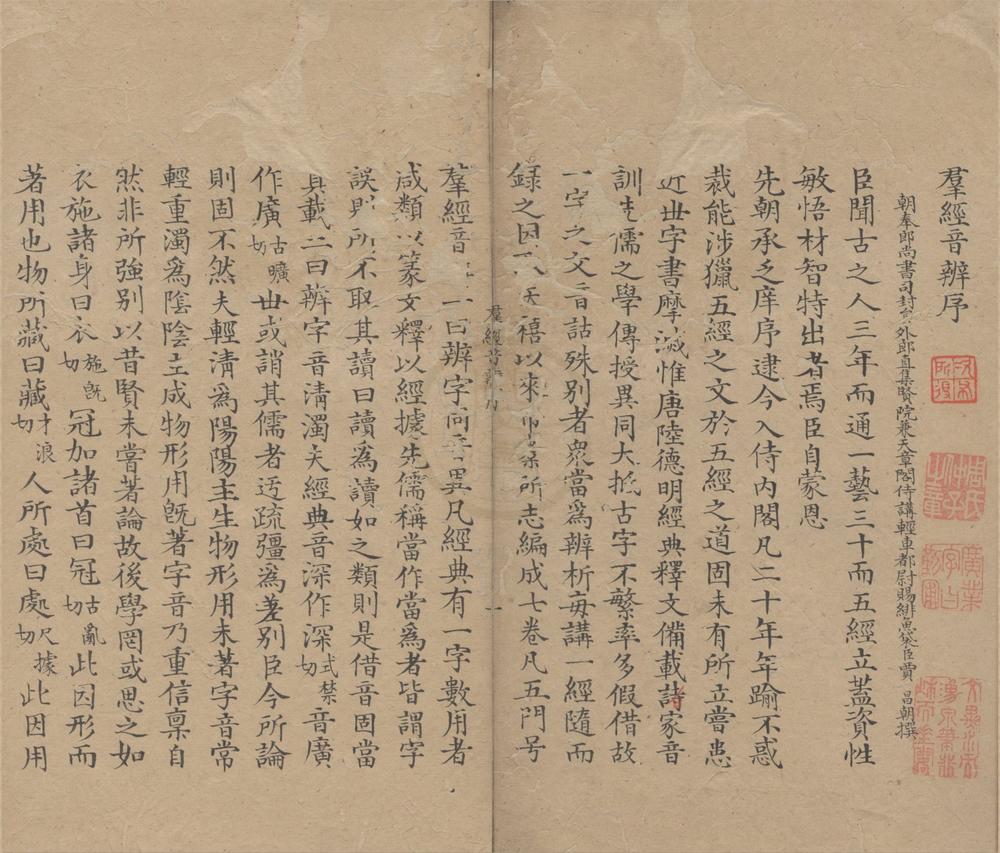 羣經音辨序
朝奉郎尚書司封員外郎直集賢院兼天章閣侍講輕車都尉賜緋魚袋臣賈昌朝撰
臣聞古之人三年而通一藝三十而五經立蓋資性
敏悟材智特出者焉臣自蒙恩
先朝承乏庠序逮今入侍内閣凡二十年年踰不惑
裁能涉獵五經之文於五經之道固未有所立嘗患
近世字書摩滅惟唐陸德明經典釋文備載諸家音
訓先儒之學傳授異同大抵古字不繁率多假借故
一字之文音詁殊別者衆當爲辨析每講一經隨而
錄之因天禧以來所志編成七卷凡五門号
羣經音辨
羣經音一曰辨字同音異凡經典有一字數用者
咸類以篆文釋以經據先儒稱當作當爲者皆謂字
誤則所不取其讀曰讀爲讀如之類則是借音固當
具載二曰辨字音清濁夫經典音深作深式禁切音廣
作廣古曠切世或誚其儒者迃疏彊爲差別臣今所論
則固不然夫輕清爲陽陽主生物形用未著字音常
輕重濁爲陰陰主成物形用旣著字音乃重信稟自
然非所強別以昔賢未嘗著論故後學罔或思之如
衣施諸身曰衣施旣切冠加諸首曰冠古亂切此因形而
著用也物所藏曰藏才浪切人所處曰處尺據切此因用